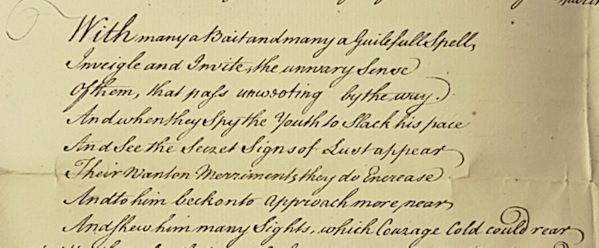 With many a Bait and many a Guilefull Spell,
Inveigle and Invite, the unwary Sense
Of them, that pass unwooting by the way.
And when they Spy the Youth to Slack his pace
And See the Secret Signs of Lust appear
Their Wanton Merriments, they do Encrease
And to him beckon to approach more near
And shew him many Sights, which Courage Cold could rear